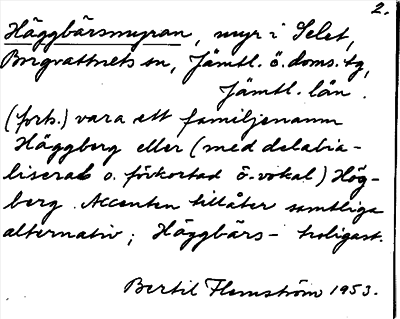 2.
Häggbärsmyran, myr i Selet,
Borgvattnets sn, Jämtl. ö. doms. tg,
Jämtl. län.
(forts.) vara ett familjenamn
Häggberg eller (med delabia-
liserat o. förkortad ö-vokal) Hög-
berg. Accenten tillåter samtliga
alternativ; Häggbärs- troligast.
Bertil Flemström 1953.